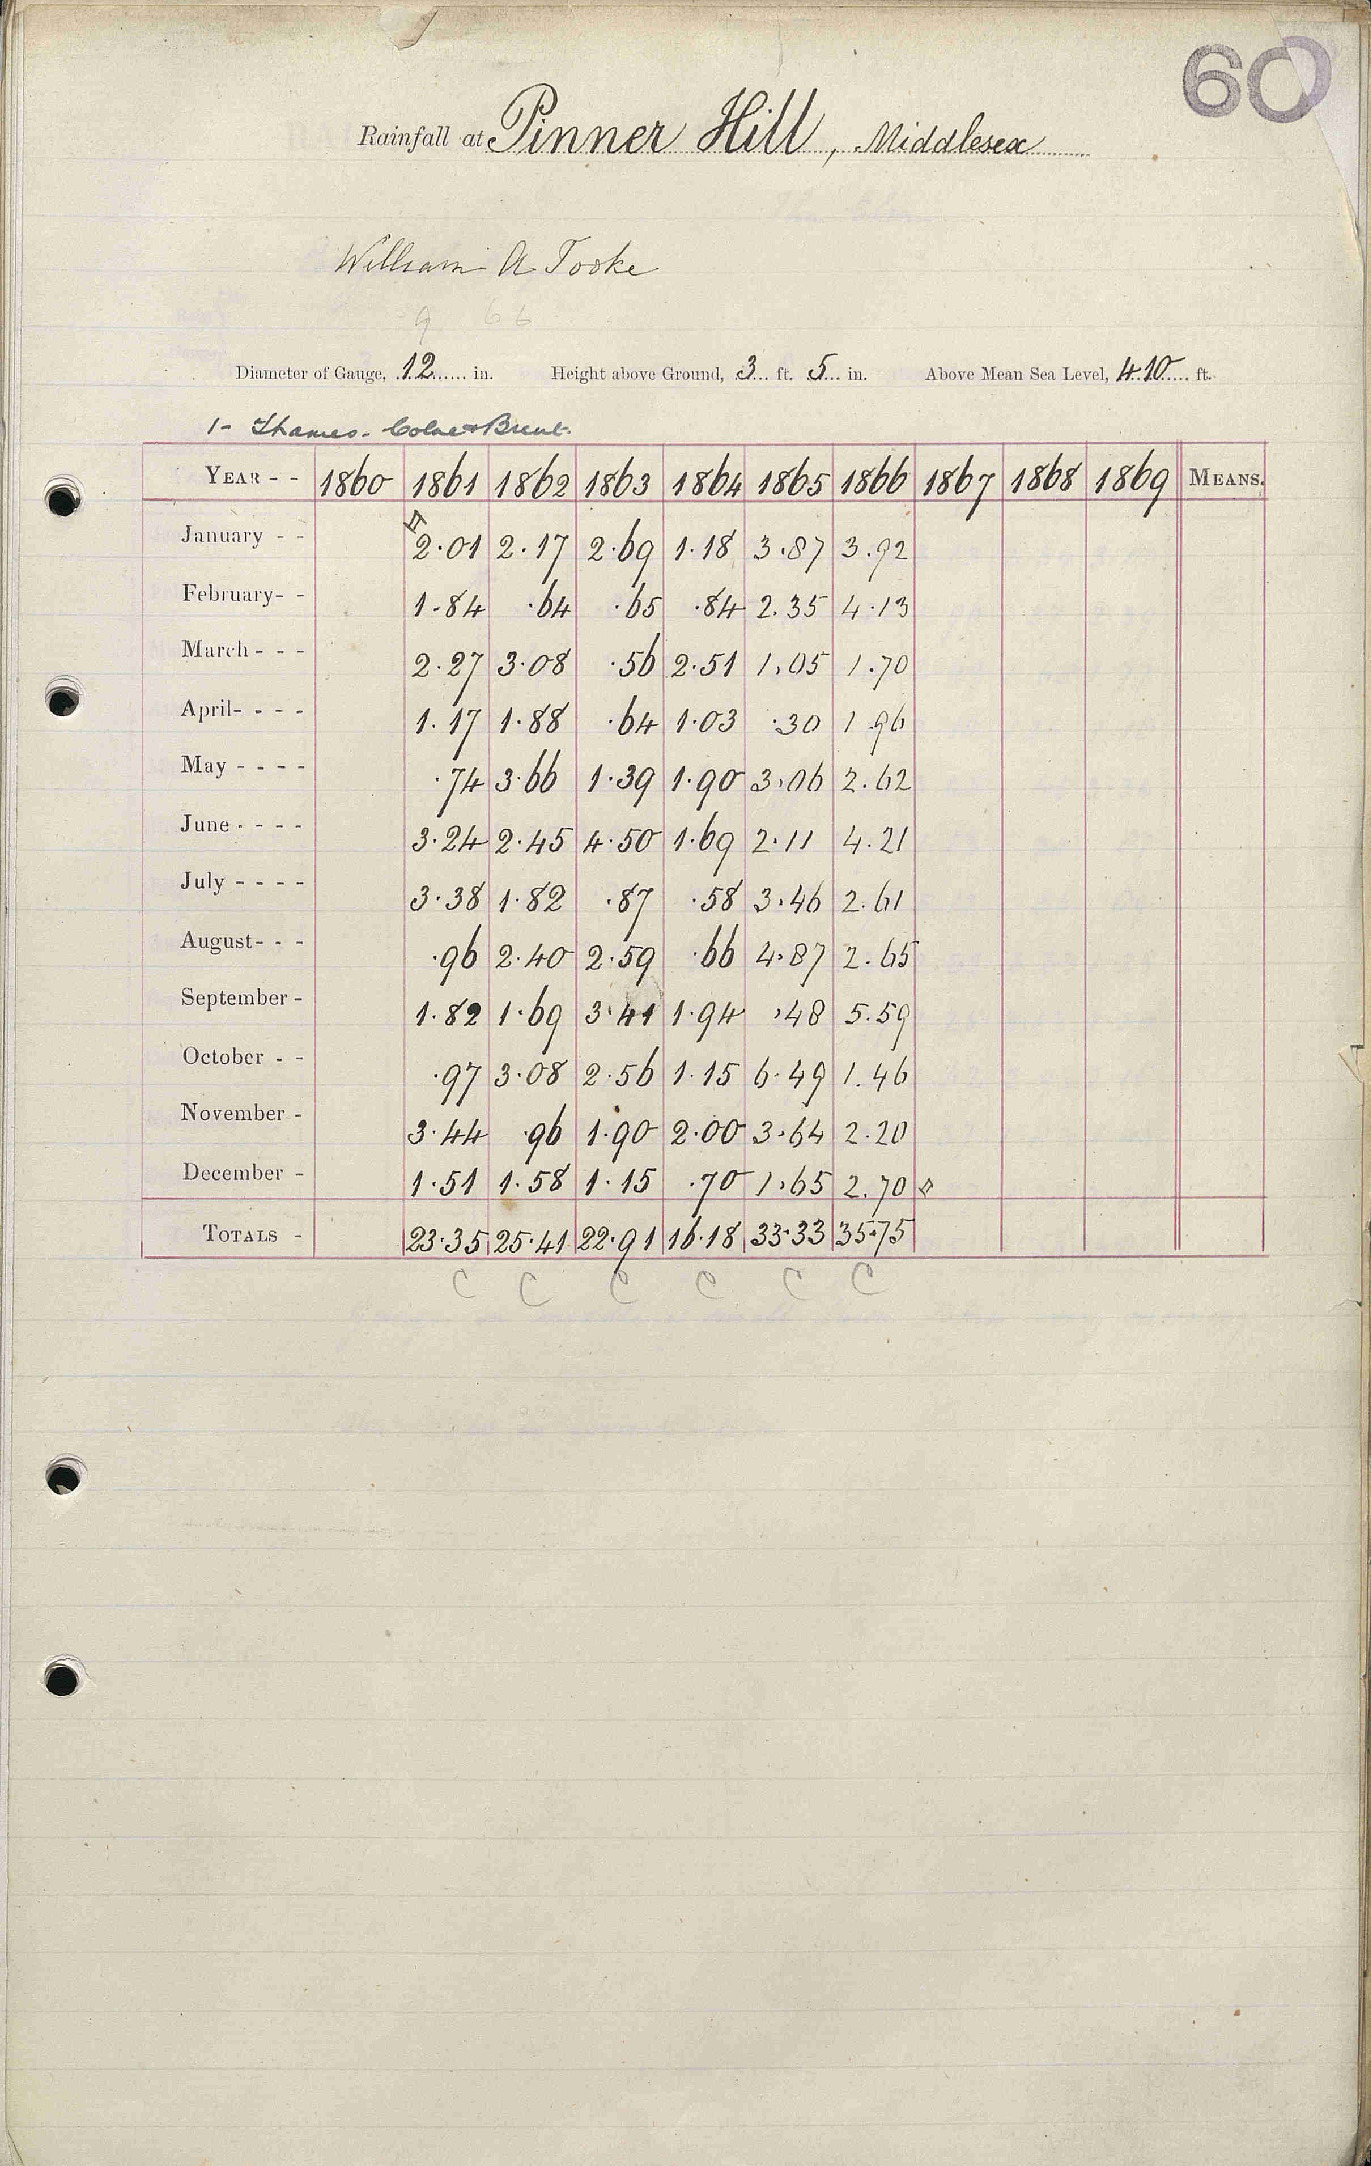 60
Rainfall at Pinner Hill, Middlesex
William A Tooke
9 66
Diameter of Gauge, 12 in. Height above Ground, 3 ft. 5 in. Above Mean Sea Level, 410 ft.
1- Thames. Colne & Brent.
YEAR - - 1860 1861 1862 1863 1864 1865 1866 1867 1868 1869 MEANS.
January - - 2.01 2.17 2.69 1.18 3.87 3.92
February- - 1.84 .64 .65 .84 2.35 4.13
March - - - 2.27 3.08 .56 2.51 1.05 1.70
April- - - - 1.17 1.88 .64 1.03 .30 1 96
May - - - - .74 3.66 1.39 1.90 3.06 2.62
June - - - - 3.24 2.45 4.50 1.69 2.11 4.21
July - - - - 3.38 1.82 .87 .58 3.46 2.61
August- - - .96 2.40 2.59 .66 4.87 2.65
September - 1.82 1.69 3.41 1.94 .48 5.59
October - - .97 3.08 2.56 1.15 6.49 1.46
November - 3.44 .96 1.90 2.00 3.64 2.20
December - 1.51 1.58 1.15 .70 1.65 2.70
TOTALS - 23.35 25.41 22.91 16.18 33.33 35.75
C C C C C C